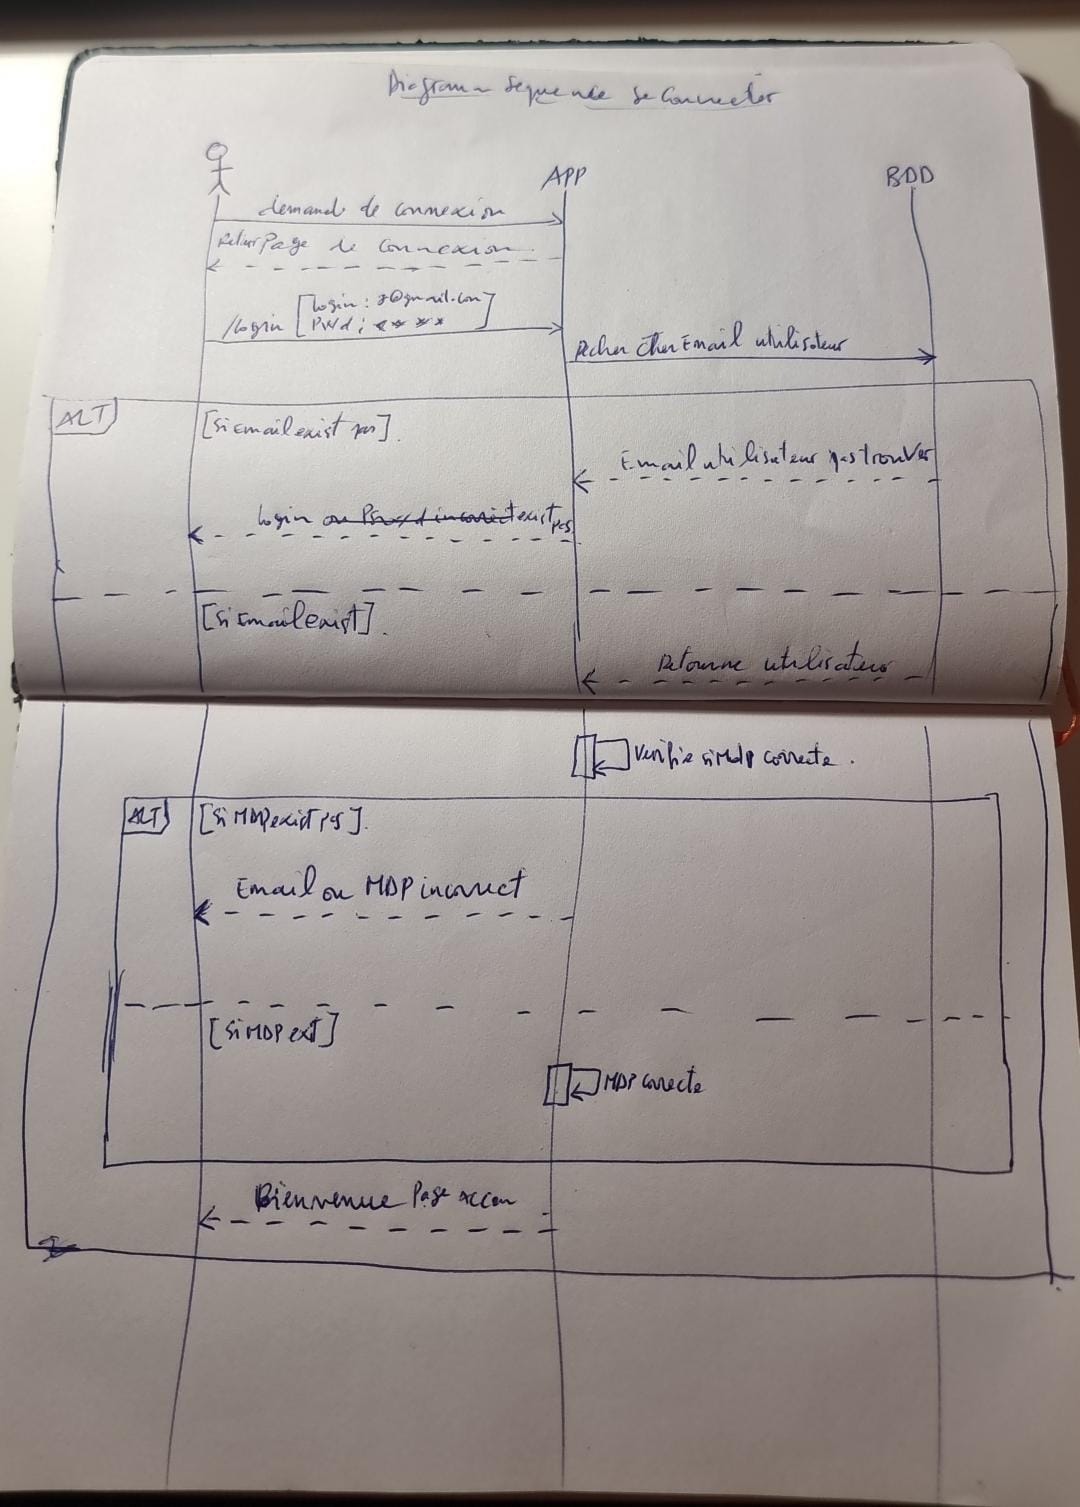 Diagramm Sequence Se Connecter
APP
BDD
demande de connexion
Retour Page de Connexion
/login [login: y@gmail.com
Pwd: ****]
Rechercher Email utilisateur
ALT
[Si Email exist pas].
Email utilisateur pas trouver
Login ou Pswd incorrect exist pas
[Si Email exist].
Retourne utilisateur
Verifie si Mdp correcte.
ALT
[Si MDP exist pas].
Email ou MDP incorrect
[Si MDP exit]
MDP correcte
Bienvenue Page accue